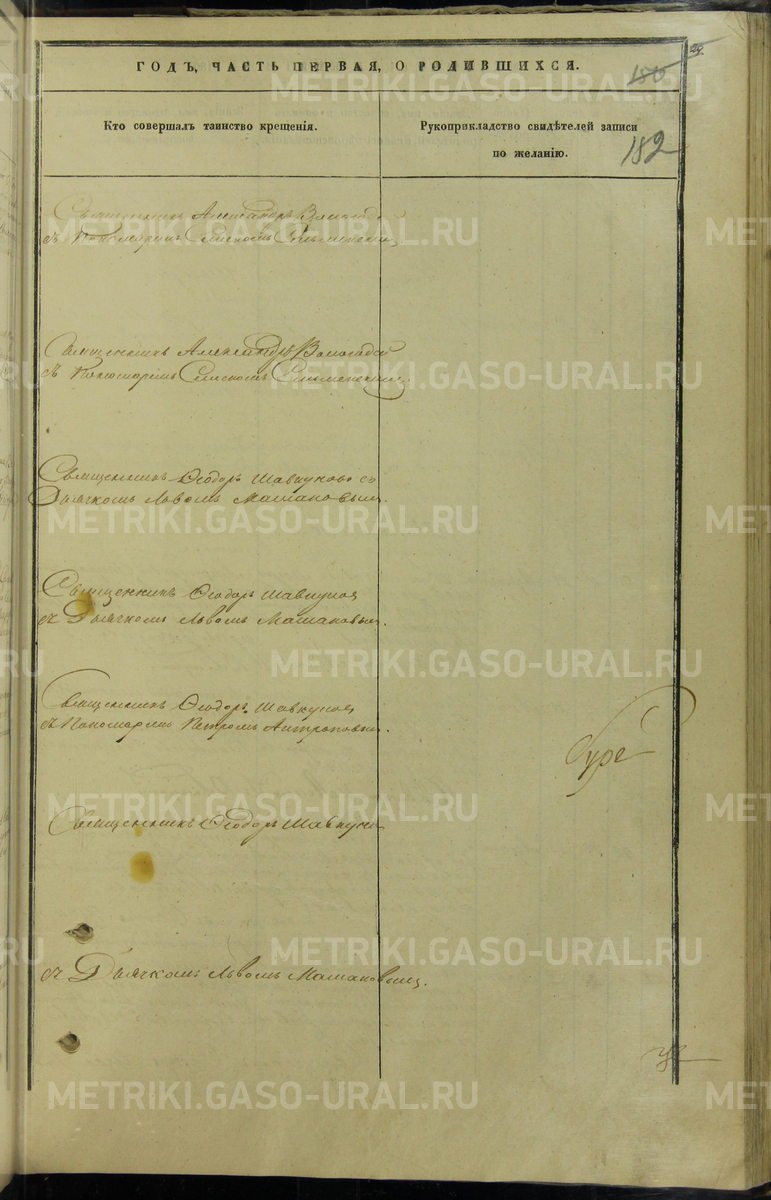 ГОДЪ, ЧАСТЬ ПЕРВАЯ, О РОДИВШИХСЯ.
180
182
Кто совершалъ таинство крещенія.
Рукоприкладство свидѣтелей записи
по желанію.
Священникъ Александръ
съ Пономаремъ
Священникъ Александръ
съ Пономаремъ
Священникъ Ѳеодоръ Шавкуновъ со
Дьячкомъ Львомъ Мамановымъ.
Священникъ Ѳеодоръ Шавкуновъ
съ Дьячкомъ Львомъ Мамановымъ.
Священникъ Ѳеодоръ Шавкуновъ
съ Пономаремъ Петромъ Антроповымъ.
Священникъ Ѳеодоръ Шавкуновъ
съ Дьячкомъ Львомъ Мамановымъ.
METRIKI.GASO-URAL.RU